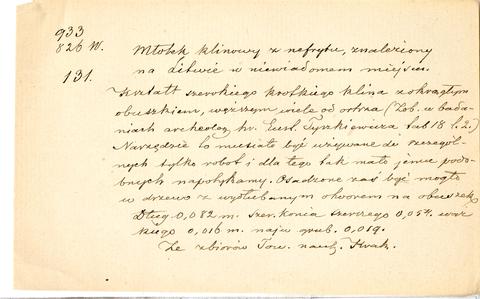 933
826 W.
131.
Młotek klinowy z nefrytu, znaleziony
na Litwie w niewiadomem miejscu.
Kształt szerokiego krótkiego klina z okrągłym
obuszkiem, węższym wiele od ostrza (Zob. w bada-
niach archeolog. hr. Eust. Tyszkiewicza tab 18 f. 2.)
Narzędzie to musiało być używane do szczegól-
nych tylko robot i dla tego tak mało jemu podo-
bnych napotykamy. Osadzone zaś być mogło
w drzewo z wydłubanym otworem na obuszek
Dług. 0,082 m. szer. końca szerszego 0,054. wąz-
kiego 0,016 m. najw. grub. 0,019.
Ze zbiorów Tow. nauk. Krak.